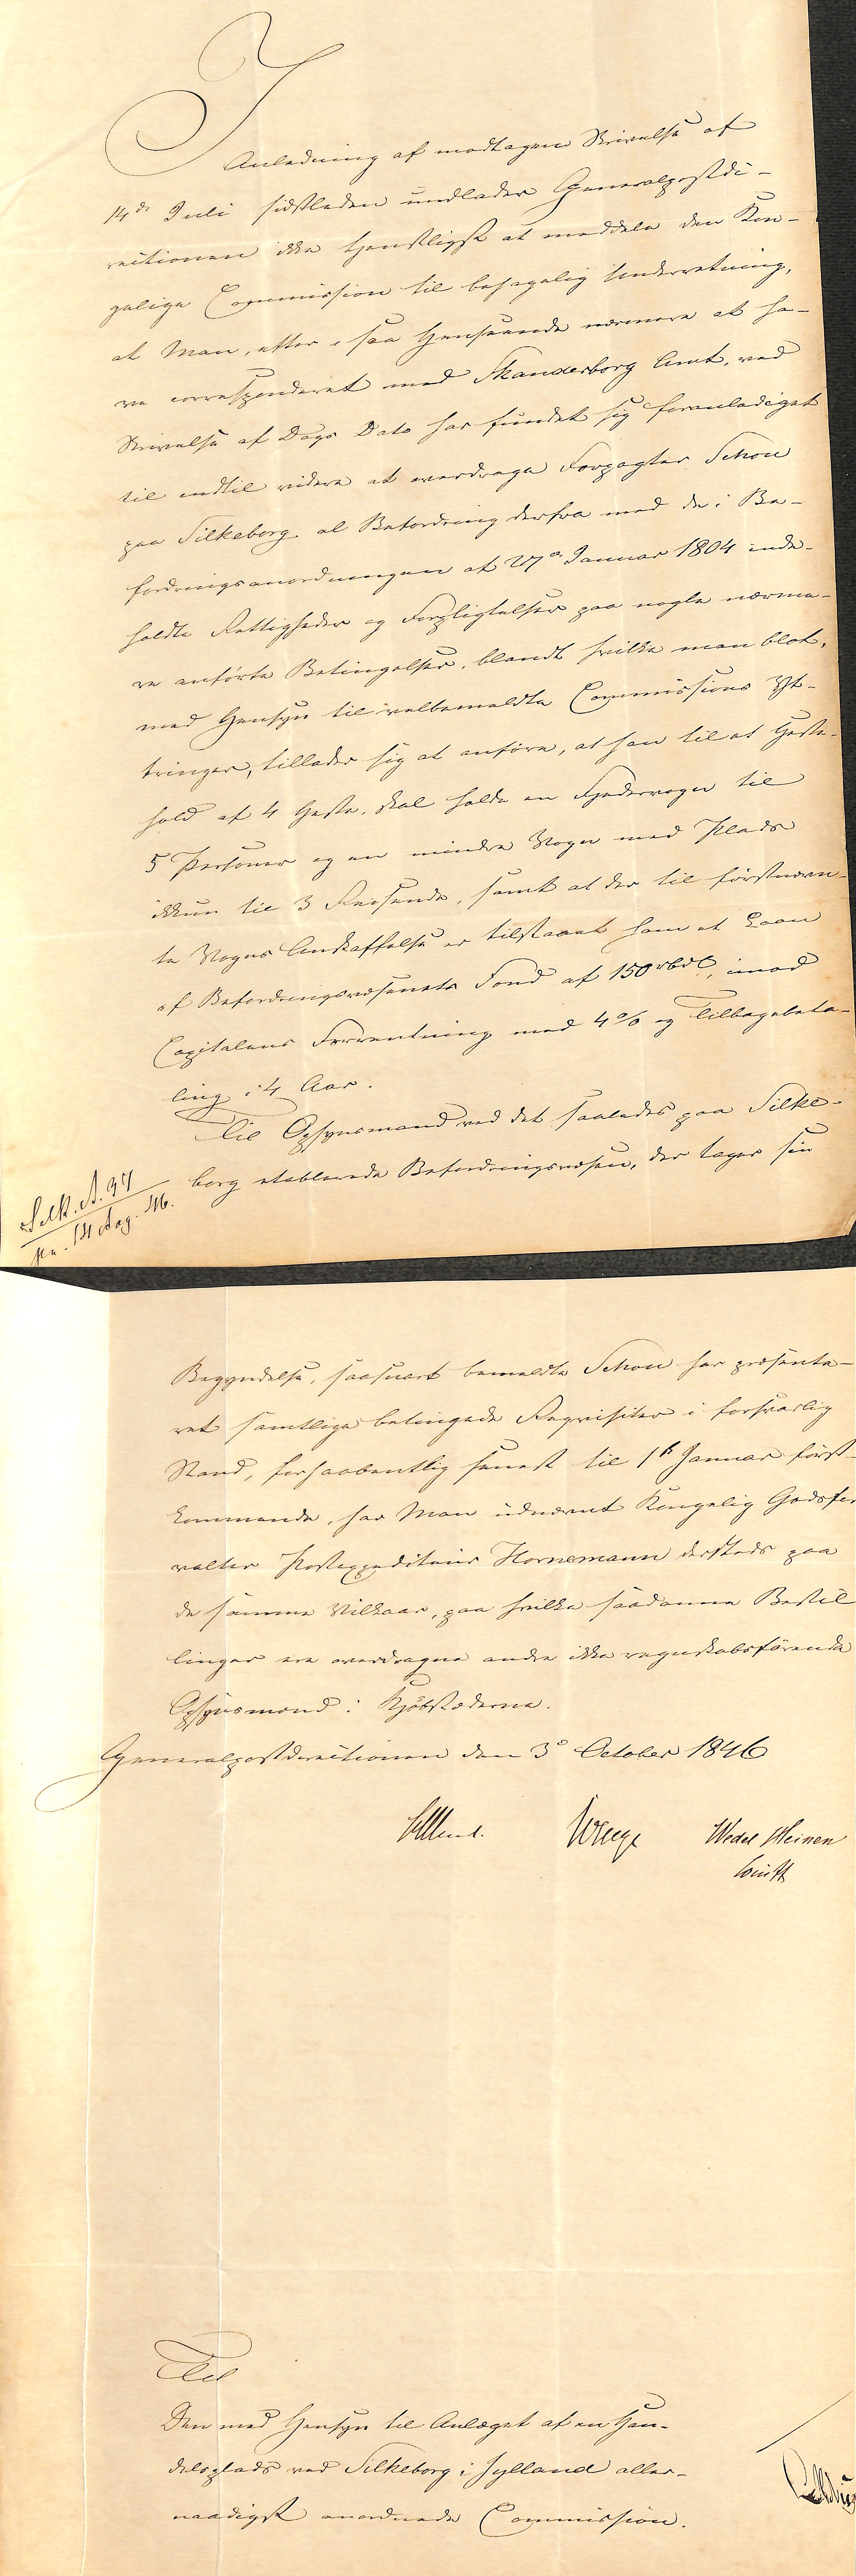 I
Anledning af modtagen Skrivelse af
14de Juli sidstleden undlader Generalpostdi-
rectionen ikke tjenstligst at meddele den Kon-
gelige Commission til behagelig Underretning,
at Man, efter i saa Henseende nærmere at ha-
ve correspondert med Skanderborg Amt, ved
Skrivelse af Dags Dato har fundet sig foranlediget
til indtil videre at overdrage Forpagter Schou
paa Silkeborg al Befordring derfra med de i Be-
fordringsanordningen af 27de Januar 1804 inde-
holdte Rettigheder og Forpligtelser paa nogle nærme-
re anførte Betingelser, blandt hvilke man blot,
med Hensyn til velbemeldte Commissions Yt-
tringer, tillader sig at anføre, at han til et Heste-
hold af 4 Heste, skal holde en Fjedervogn til
5 Personer og en mindre Vogn med Plads
ikkun til 3 Reisende, samt at der til förstnævn-
te Vogns Anskaffelse er tilstaaet ham et Laan
af Befordringsvæsenets Fond af 150 rbdl, imod
Capitalens Forrentning med 4% og Tilbagebeta-
ling i 4 Aar.
Til Opsynsmand ved det saaledes paa Silke-
borg etablerede Befordringsvæsen, der tager sin
Silk. A. 97
14 Aug. 46.
Begyndelse, saasnart bemeldte Schou har præsente-
ret samtlige betingede Requisiter i forsvarlig
Stand, forhaabentlig senest til 1ste Januar först-
kommende, har Man udnævnt Kongelig Godsfor
valter Postexpediteur Hornemann dersteds paa
de samme Vilkaar, paa hvilke saadanne Bestil
linger ere overdragne andre ikke regnskabsförende
Opsynsmænd i Kjöbstæderne.
Generalpostdirectionen den 3de October 1846
Wedel Heinen
Til
Den med Hensyn til Anlæget af en Han-
delsplads ved Silkeborg i Jylland aller-
naadigst anordnede Commission.